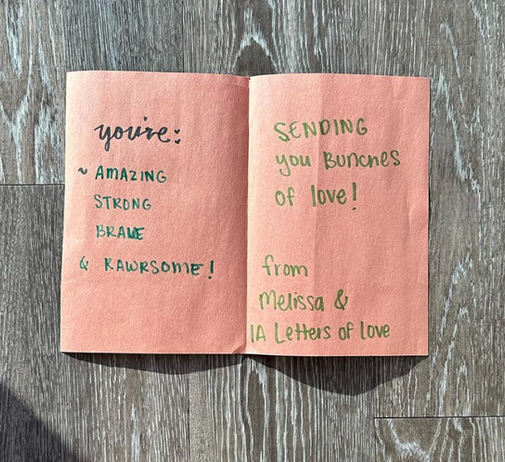 you're:
~ AMAZING
STRONG
BRAVE
& RAWRSOME!
SENDING
you Bunches
of love!
from
Melissa &
IA Letters of love